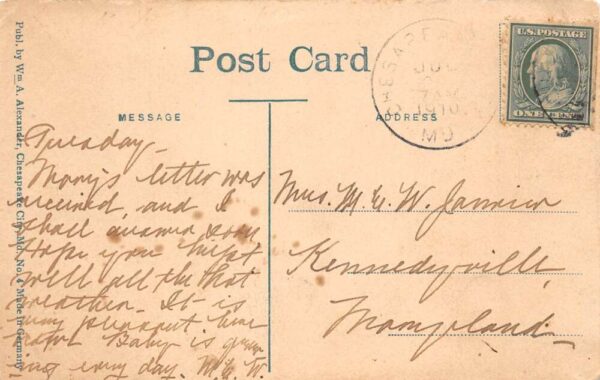 Post Card
MESSAGE
ADDRESS
Publ. by Wm A. Alexander, Chesapeake City, Md. No. 4 Made in Germany
CHESAPE
JU
7 AM
1910
MD
U.S. POSTAGE
ONE CENT
Tuesday
Mary's letter was
received and I
shall answer soon
Hope you kept
well all the hot
weather. It is
very pleasant here
Baby is grow
ing every day. M.E.W.
Mrs. M. E. W. Janvier
Kennedyville
Maryland